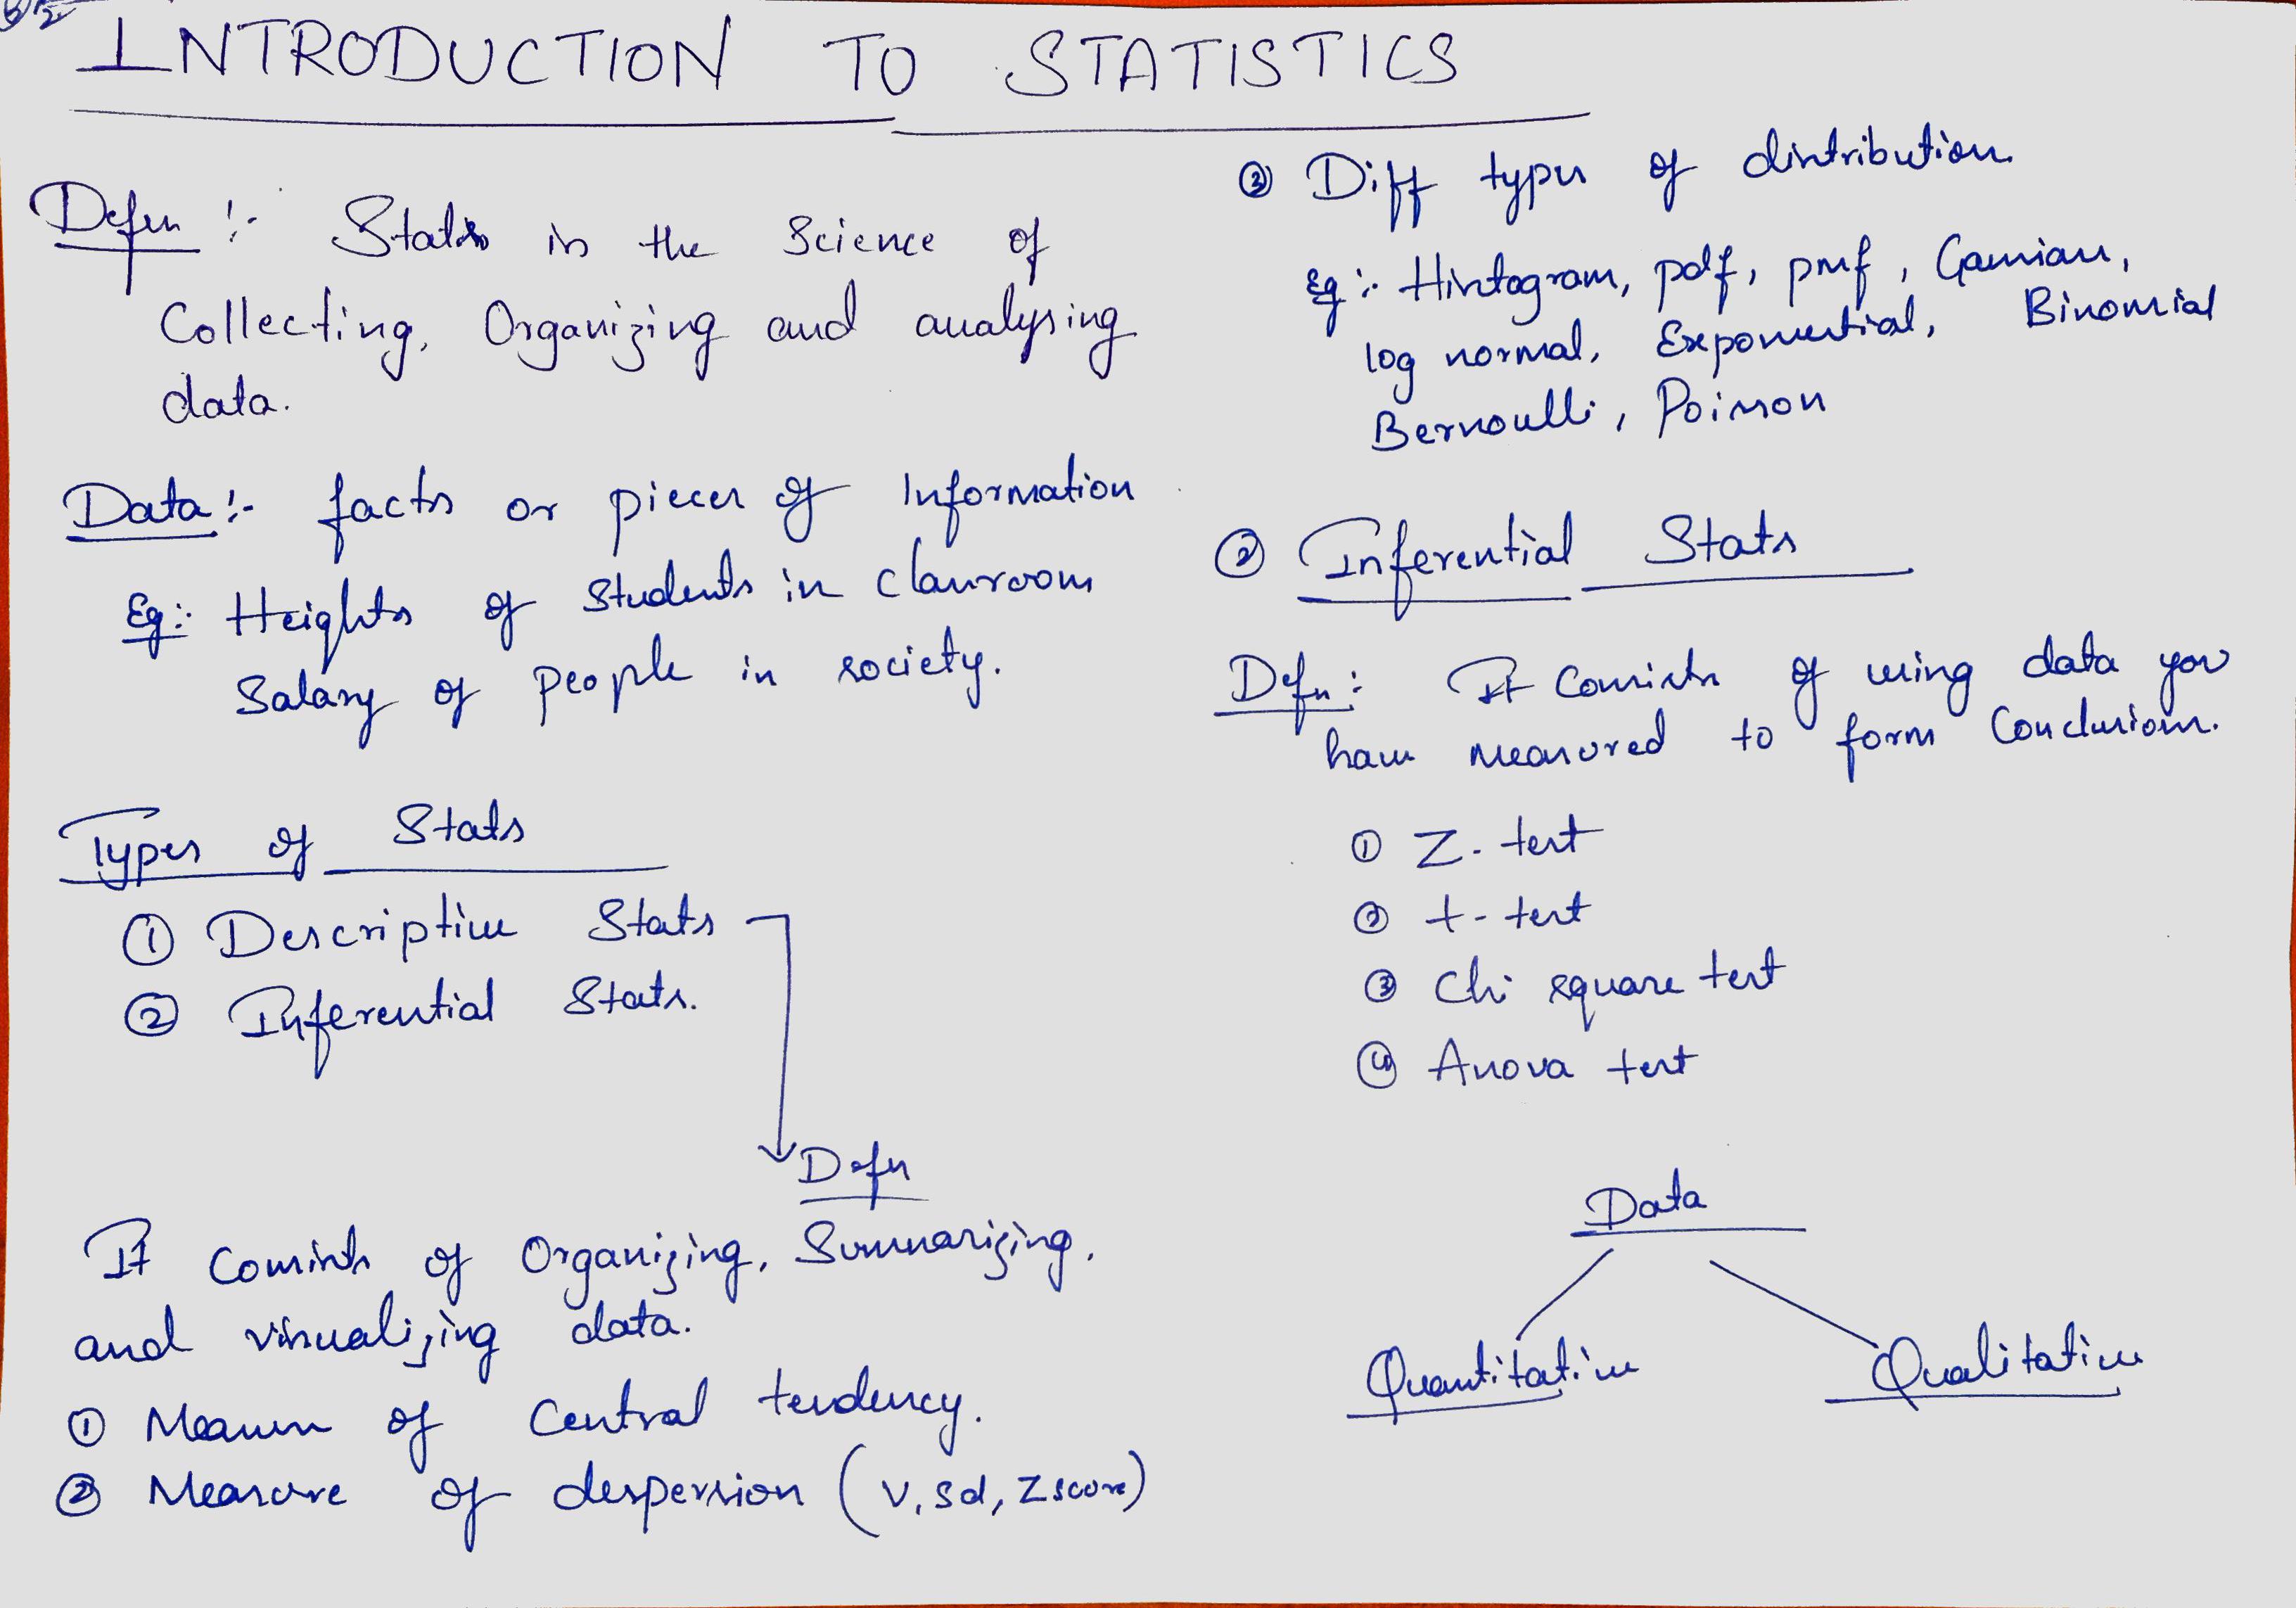 INTRODUCTION TO STATISTICS
Defn :- Stats is the Science of
Collecting, Organizing and analysing
data.
Data :- facts or pieces of Information
Eg :- Heights of Students in classroom
Salary of people in society.
Types of Stats
① Descriptive Stats
② Inferential Stats.
Defn
It consists of Organizing, Summarizing,
and visualizing data.
① Measure of Central tendency.
② Measure of despersion (V, sd, Z score)
③ Diff types of distribution.
Eg :- Histogram, pdf, pmf, Gaussian,
log normal, Exponential, Binomial
Bernoulli, Poisson
② Inferential Stats
Defn : It consists of using data you
have measured to form Conclusions.
① Z-test
② t-test
③ Chi square test
④ Anova test
Data
Quantitative Qualitative